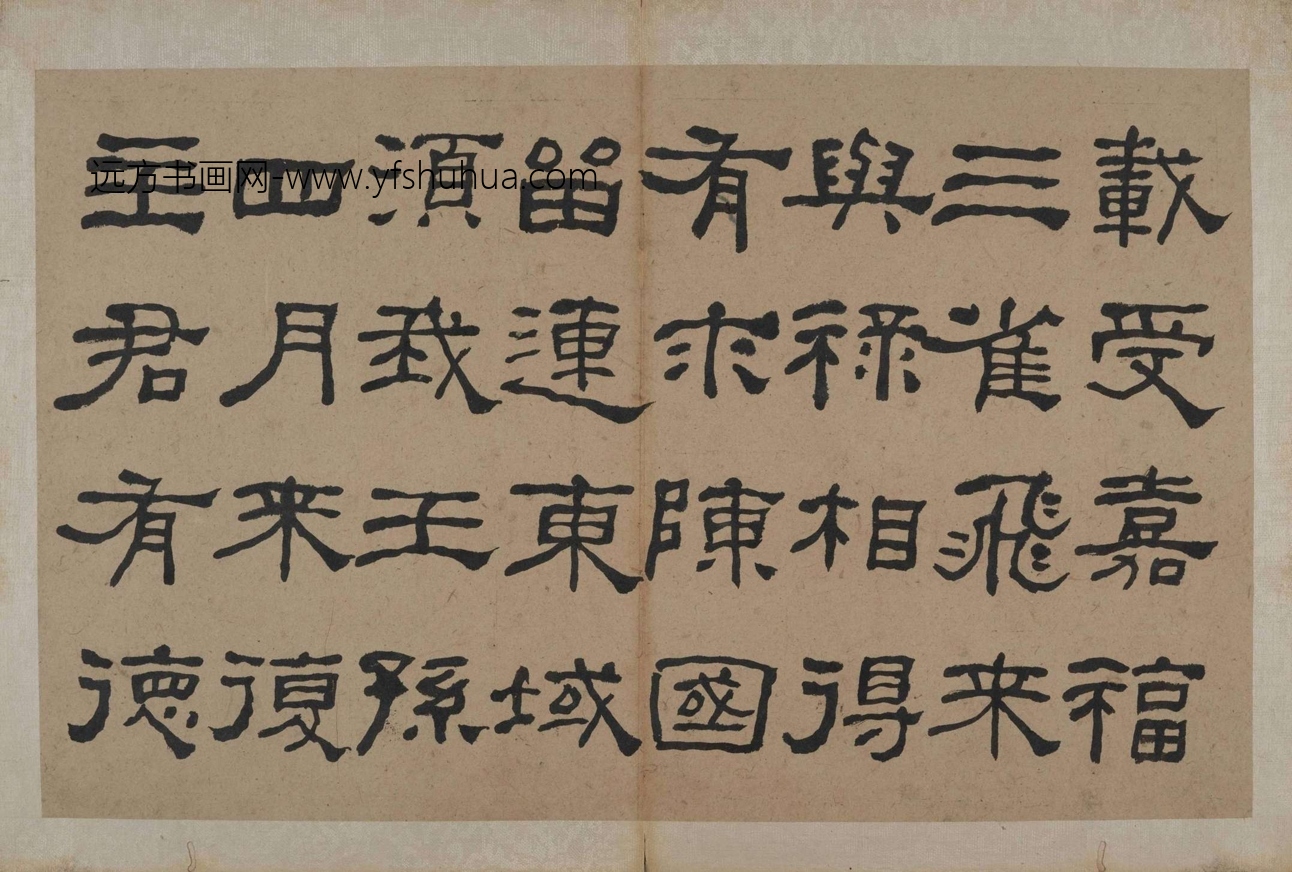 載受嘉福
三雀飛来
與禄相得
有求陳國
留連東域
須我王孫
四月来復
主君有徳
远方书画网-www.yfshuhua.com